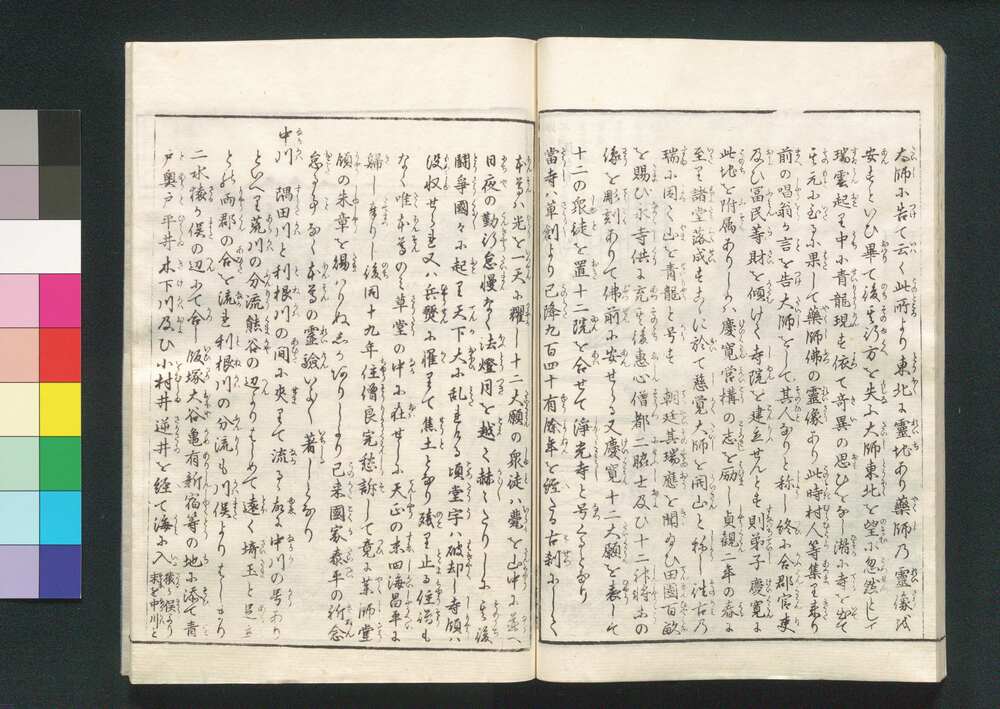 大師に告て云く此所より東北に靈地あり藥師乃靈像を
安すといひ畢て後其行方を失ふ大師東北を望に忽然として
瑞雲起り中に青龍現も依て奇異の思ひをなし潜に寺を出て
其元に至るに果して藥師佛の靈像あり此時村人等集り来り
前の唱翁が言を告大師をして其人なりと称し終に合郡官吏
及ひ冨民等財を傾けて寺院を建立せんとす則弟子慶寛に
此地を附属ありしかハ慶寛営構の志を励し貞観二年の春に
至り諸堂落成もよつて慈覚大師を開山と称し往古乃
瑞に因て山を青龍と号も朝廷其瑞應を聞ゐひ田園百畝
を賜ひ永寺供に充其後惠心僧都二脇士及ひ十二神将等の
像を彫刻ありて佛前に安せらる又慶寛十二大願を表して
十二の衆徒を置十二院を合せて浄光寺と号くとなり
當寺ハ草創より已降九百四十有餘年を經たる古刹にして
本尊ハ光を一天に耀し十二大願の衆徒ハ甍を山中に並へ
日夜の勤行怠慢なく法燈月を越て赫々たりしに其後
闘爭國々に起り天下大に乱れける頃堂宇ハ破却し寺領ハ
没収せられ又ハ兵燹に罹りて焦土となり殘り止る住僧も
なく唯本尊のミ草堂の中に在せしに天正の末四海昌平に
歸しより後同十九年住僧良完愁訴して竟に薬師堂
領の朱章を賜ハりぬしかありしより已来國家泰平の祈念
怠る事なく本尊の靈驗いよ〳〵著しとなり
中川 隅田川と利根川の間に夾りて流る故に中川の号あり
といへり荒川の分流熊谷の辺よりはしめて遠く埼玉と足立
との両郡の合を流れ利根川の分流も川俣よりはしまり
二水猿か俣の辺にて合し飯塚大谷亀有新宿等の地に添て青
戸奥戸平井木下川及ひ小村井逆井を経て海に入 猿か俣より末を中川と